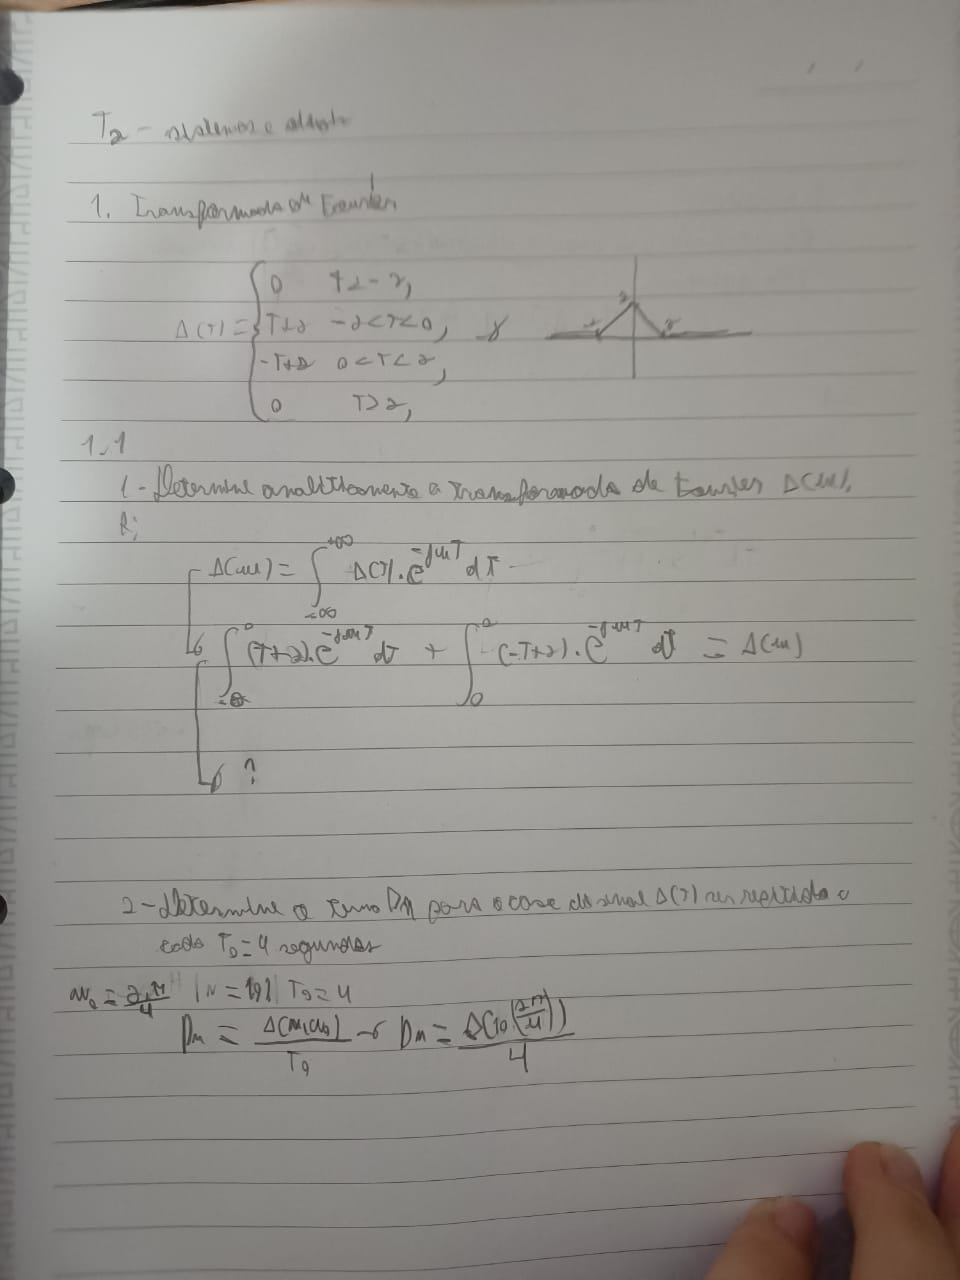 T2 - sistemas e
1. Transformada de Fourier
Δ(T) = { 0 T<-2,
T+2 -2<T<0,
-T+2 0<T<2,
0 T>2,
2
-2 2
1.1
1 - Determine analiticamente a transformada de Fourier Δ(w).
R:
Δ(w) = ∫_{-∞}^{+∞} Δ(T).e^{-jwT} dT
∫^{0} (T+2).e^{-jwT} dT + ∫_{0}^{2} (-T+2).e^{-jwT} dT = Δ(w)
?
2 - determine o termo Dn para o caso do sinal Δ(T) ser repetido a
cada T0 = 4 segundos
w0 = 2.π/4 | T0 = 4
Dn = Δ(n.w0)/T0 → Dn = /4